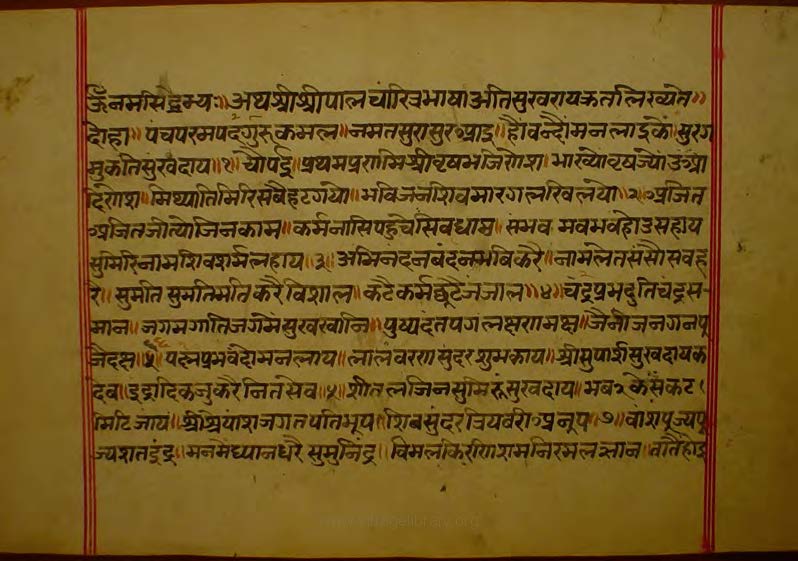 ॐनमःसिद्धेभ्यः॥अथश्रीश्रीपालचरित्रभाषाअतिसुखरायकृतलिख्यते॥
दोहा॥पंचपरमपदगुरुकमल॥नमतसुरासुरआइ॥हौंवन्दौंमनलाइकें॥सुरग
मुकतिसुखदाय॥१॥चौपई॥प्रथमप्रणमिश्रीवृषभजिणेश॥भाख्योवृषज्योंउआ
दिणेश॥मिथ्यातिमिरिसबैहटगयो॥भविजनशिवमारगलखिलयो॥२॥अजित
अजितजीत्योजिनकाम॥कर्मनासिपहुचेसिवधाम॥संभवभवभवहोउसहाय
सुमिरिनामशिवशर्मलहाय॥३॥अभिनंदनबंदनभबिकरै॥नामलेतसंसौसवह
रै॥सुमतिसुमतिमतिकरैविशाल॥कटैकर्मछूटैजंजाल॥४॥चंद्रप्रभदुतिचंद्रस-
मान॥जगमगातिजगमेंसुखखानि॥पुष्पदंतपगलक्षणमक्ष॥जैनीजनगनपू
जैदक्ष॥५॥पद्मप्रभवंदौमनलाय॥लालवरणसुंदरशुभकाय॥श्रीसुपार्शसुखदायक
देव॥इंद्रादिकजुकरैनितसेव॥५॥शीतलजिनसुमिरूसुखदाय॥भव२केसंकट
मिटिजाय॥श्रीश्रेयांशजगतपतिभूप॥शिबसुंदरत्रियवरीअनूप॥७॥वांशपूज्यपू
ज्यशतइंद्र॥मनमैध्यानधरैसुमुनिंद्र॥विमलकिरणिशमनिरमलज्ञान॥वातैहोइ
www.jainelibrary.org